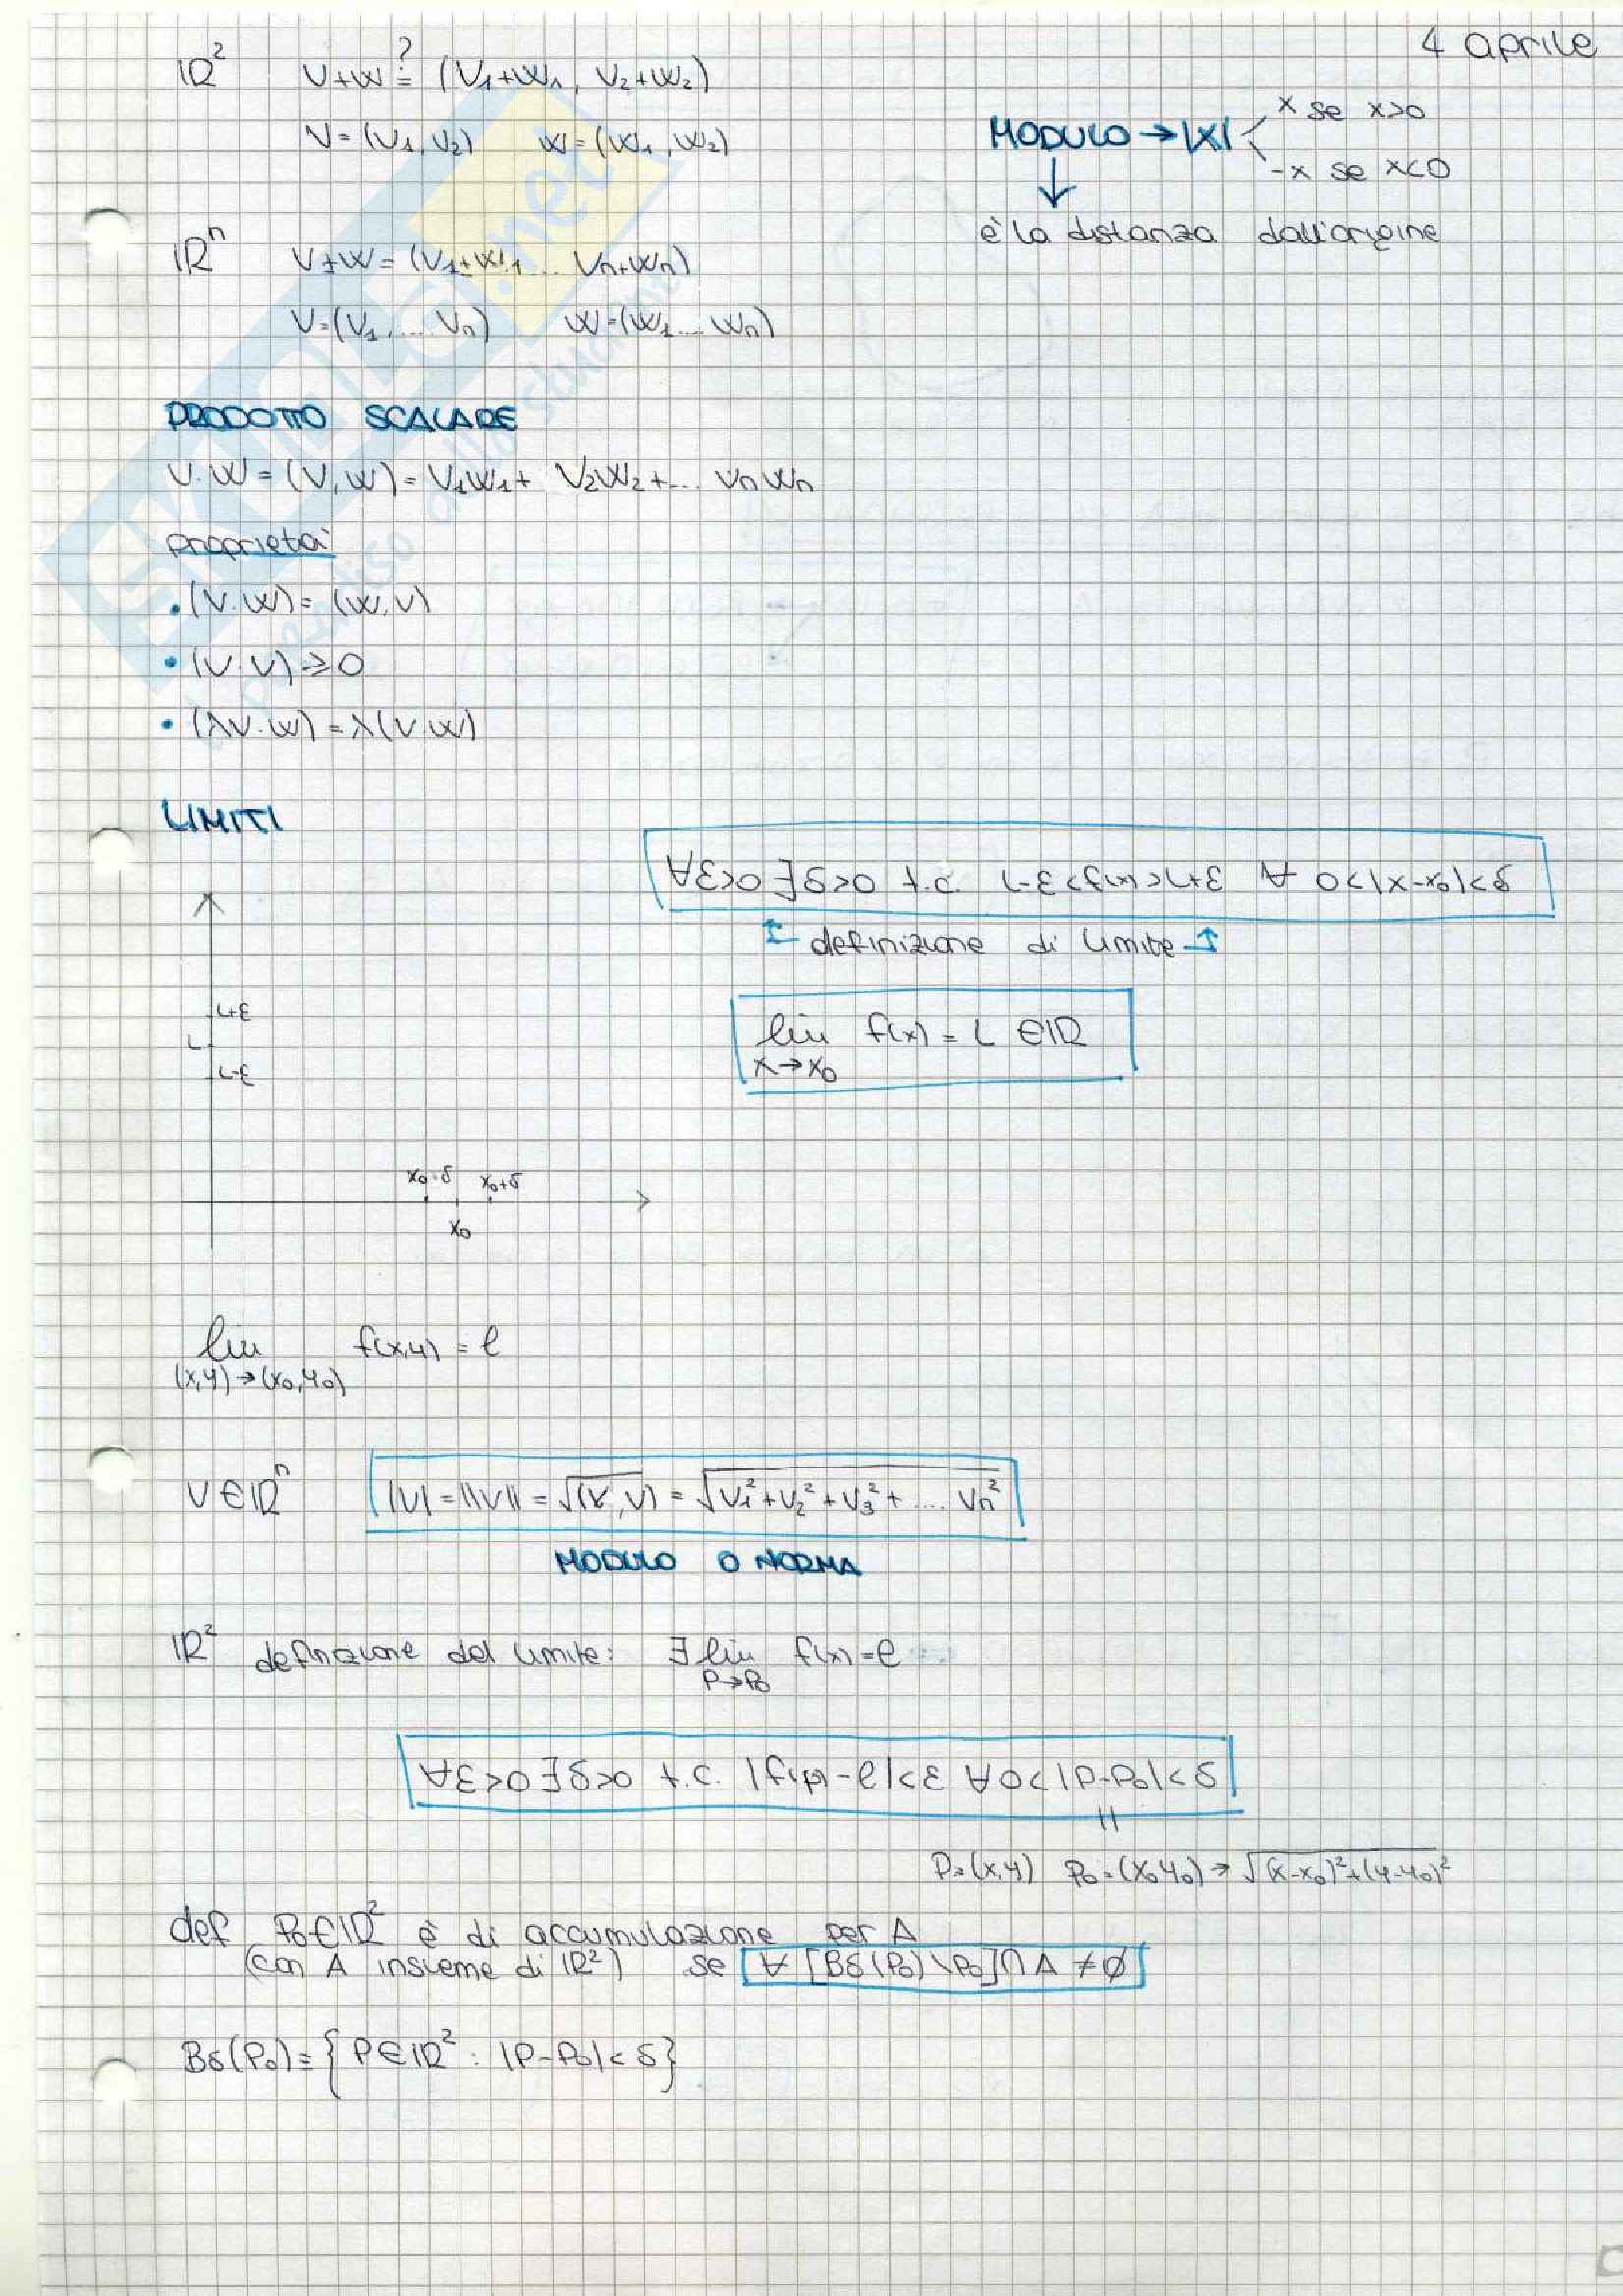 4 aprile
ℝ² V+W ≟ (V₁+W₁, V₂+W₂)
V=(V₁,V₂) W=(W₁,W₂)
MODULO → |X| < x se x>0
-x se x<0
↓
è la distanza dall'origine
ℝⁿ V+W = (V₁+W₁, ... Vn+Wn)
V=(V₁,... Vn) W=(W₁... Wn)
PRODOTTO SCALARE
V·W = (V,W) = V₁W₁ + V₂W₂ + ... VnWn
proprietà
• (V·W) = (W,V)
• (V·V) ⩾ 0
• (λV·W) = λ(V·W)
LIMITI
∀ε>0 ∃δ>0 t.c. L-ε<f(x)>L+ε ∀ 0<|x-x₀|<δ
↑ definizione di limite ↑
L+ε
L
L-ε
lim f(x) = L ∈ℝ
x→x₀
x₀-δ x₀+δ
x₀
lim f(x,y) = ℓ
(x,y)→(x₀,y₀)
V∈ℝⁿ |V| = ||V|| = √(V,V) = √V₁²+V₂²+V₃²+.... Vn²
MODULO O NORMA
ℝ² definizione del limite: ∃ lim f(x) = ℓ
P→P₀
∀ε>0 ∃δ>0 t.c. |f(p)-ℓ|<ε ∀0<|P-P₀|<δ
||
P=(x,y) P₀=(x₀,y₀) → √(x-x₀)²+(y-y₀)²
def P₀∈ℝ² è di accumulazione per A
(con A insieme di ℝ²) se ∀ [Bδ(P₀)\P₀]∩A ≠ ∅
Bδ(P₀) = {P∈ℝ² : |P-P₀|<δ}